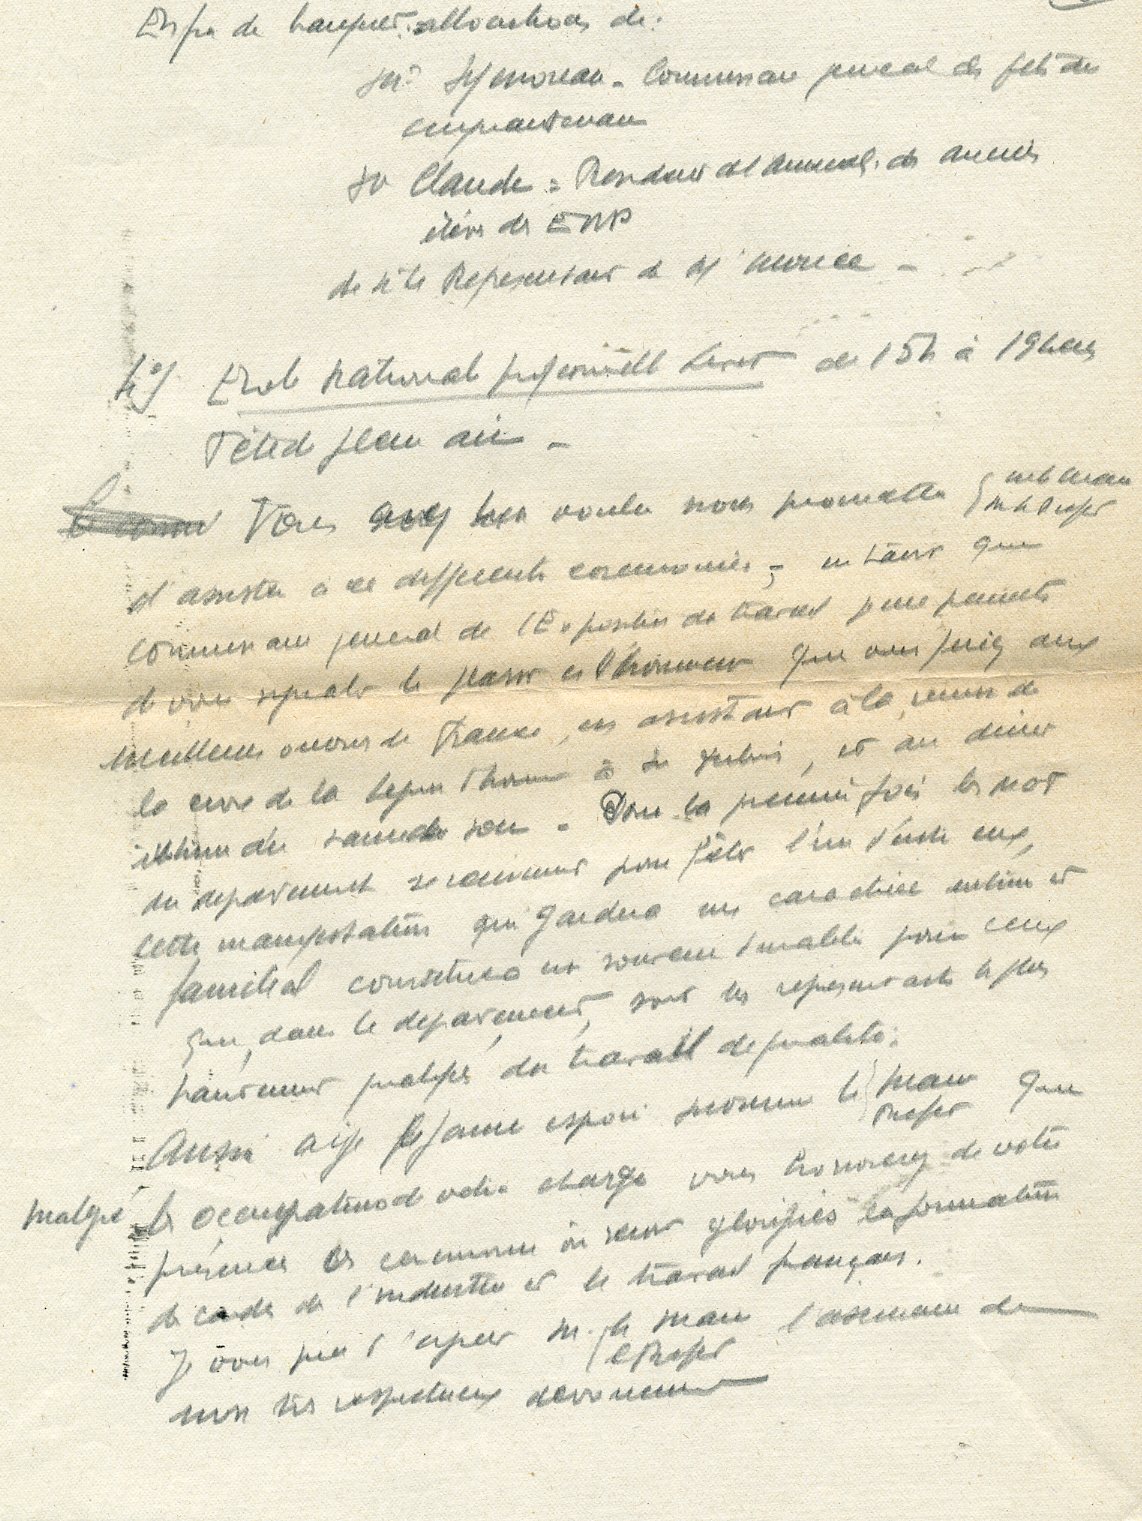 En fin de banquet allocutions de:
Mr Symoneau - Commissaire general des fetes du
cinquantenaire
Mr Claude = President de l'amicale des anciens
élèves des ENP
de Mr le Representant de
4°) Ecole Nationale professionnelle Livet de 15h à 19 heures
Fête de plein air -
Vous avez bien voulu nous promettre { Mr le Maire
Mr le Prefet
d'assister à ces differentes ceremonies - en tant que
Commissaire general de l'Exposition du travail je me permets
de vous signaler le plaisir et l'honneur que vous feriez aux
Meilleurs ouvriers de France, en assistant à la remise de
la croix de la Legion d'honneur à Mr, et au diner
intime du samedi soir - Pour la premiere fois les MOF
du departement se reunissent pour fêter l'un d'entre eux,
cette manifestation qui gardera un caractère intime et
familial constituera un souvenir durable pour ceux
qui, dans le departement, sont les representants les plus
hautement qualifiés du travail de qualité.
Aussi ai je le ferme espoir Monsieur le { Maire que
Prefet
malgré les occupations de votre charge vous honorerez de votre
présence les ceremonies où seront glorifiés la formation
de cadres de l'industrie et le travail français.
Je vous prie d'agreer M. { le Maire l'assurance de
le Prefet
mon très respectueux devouement